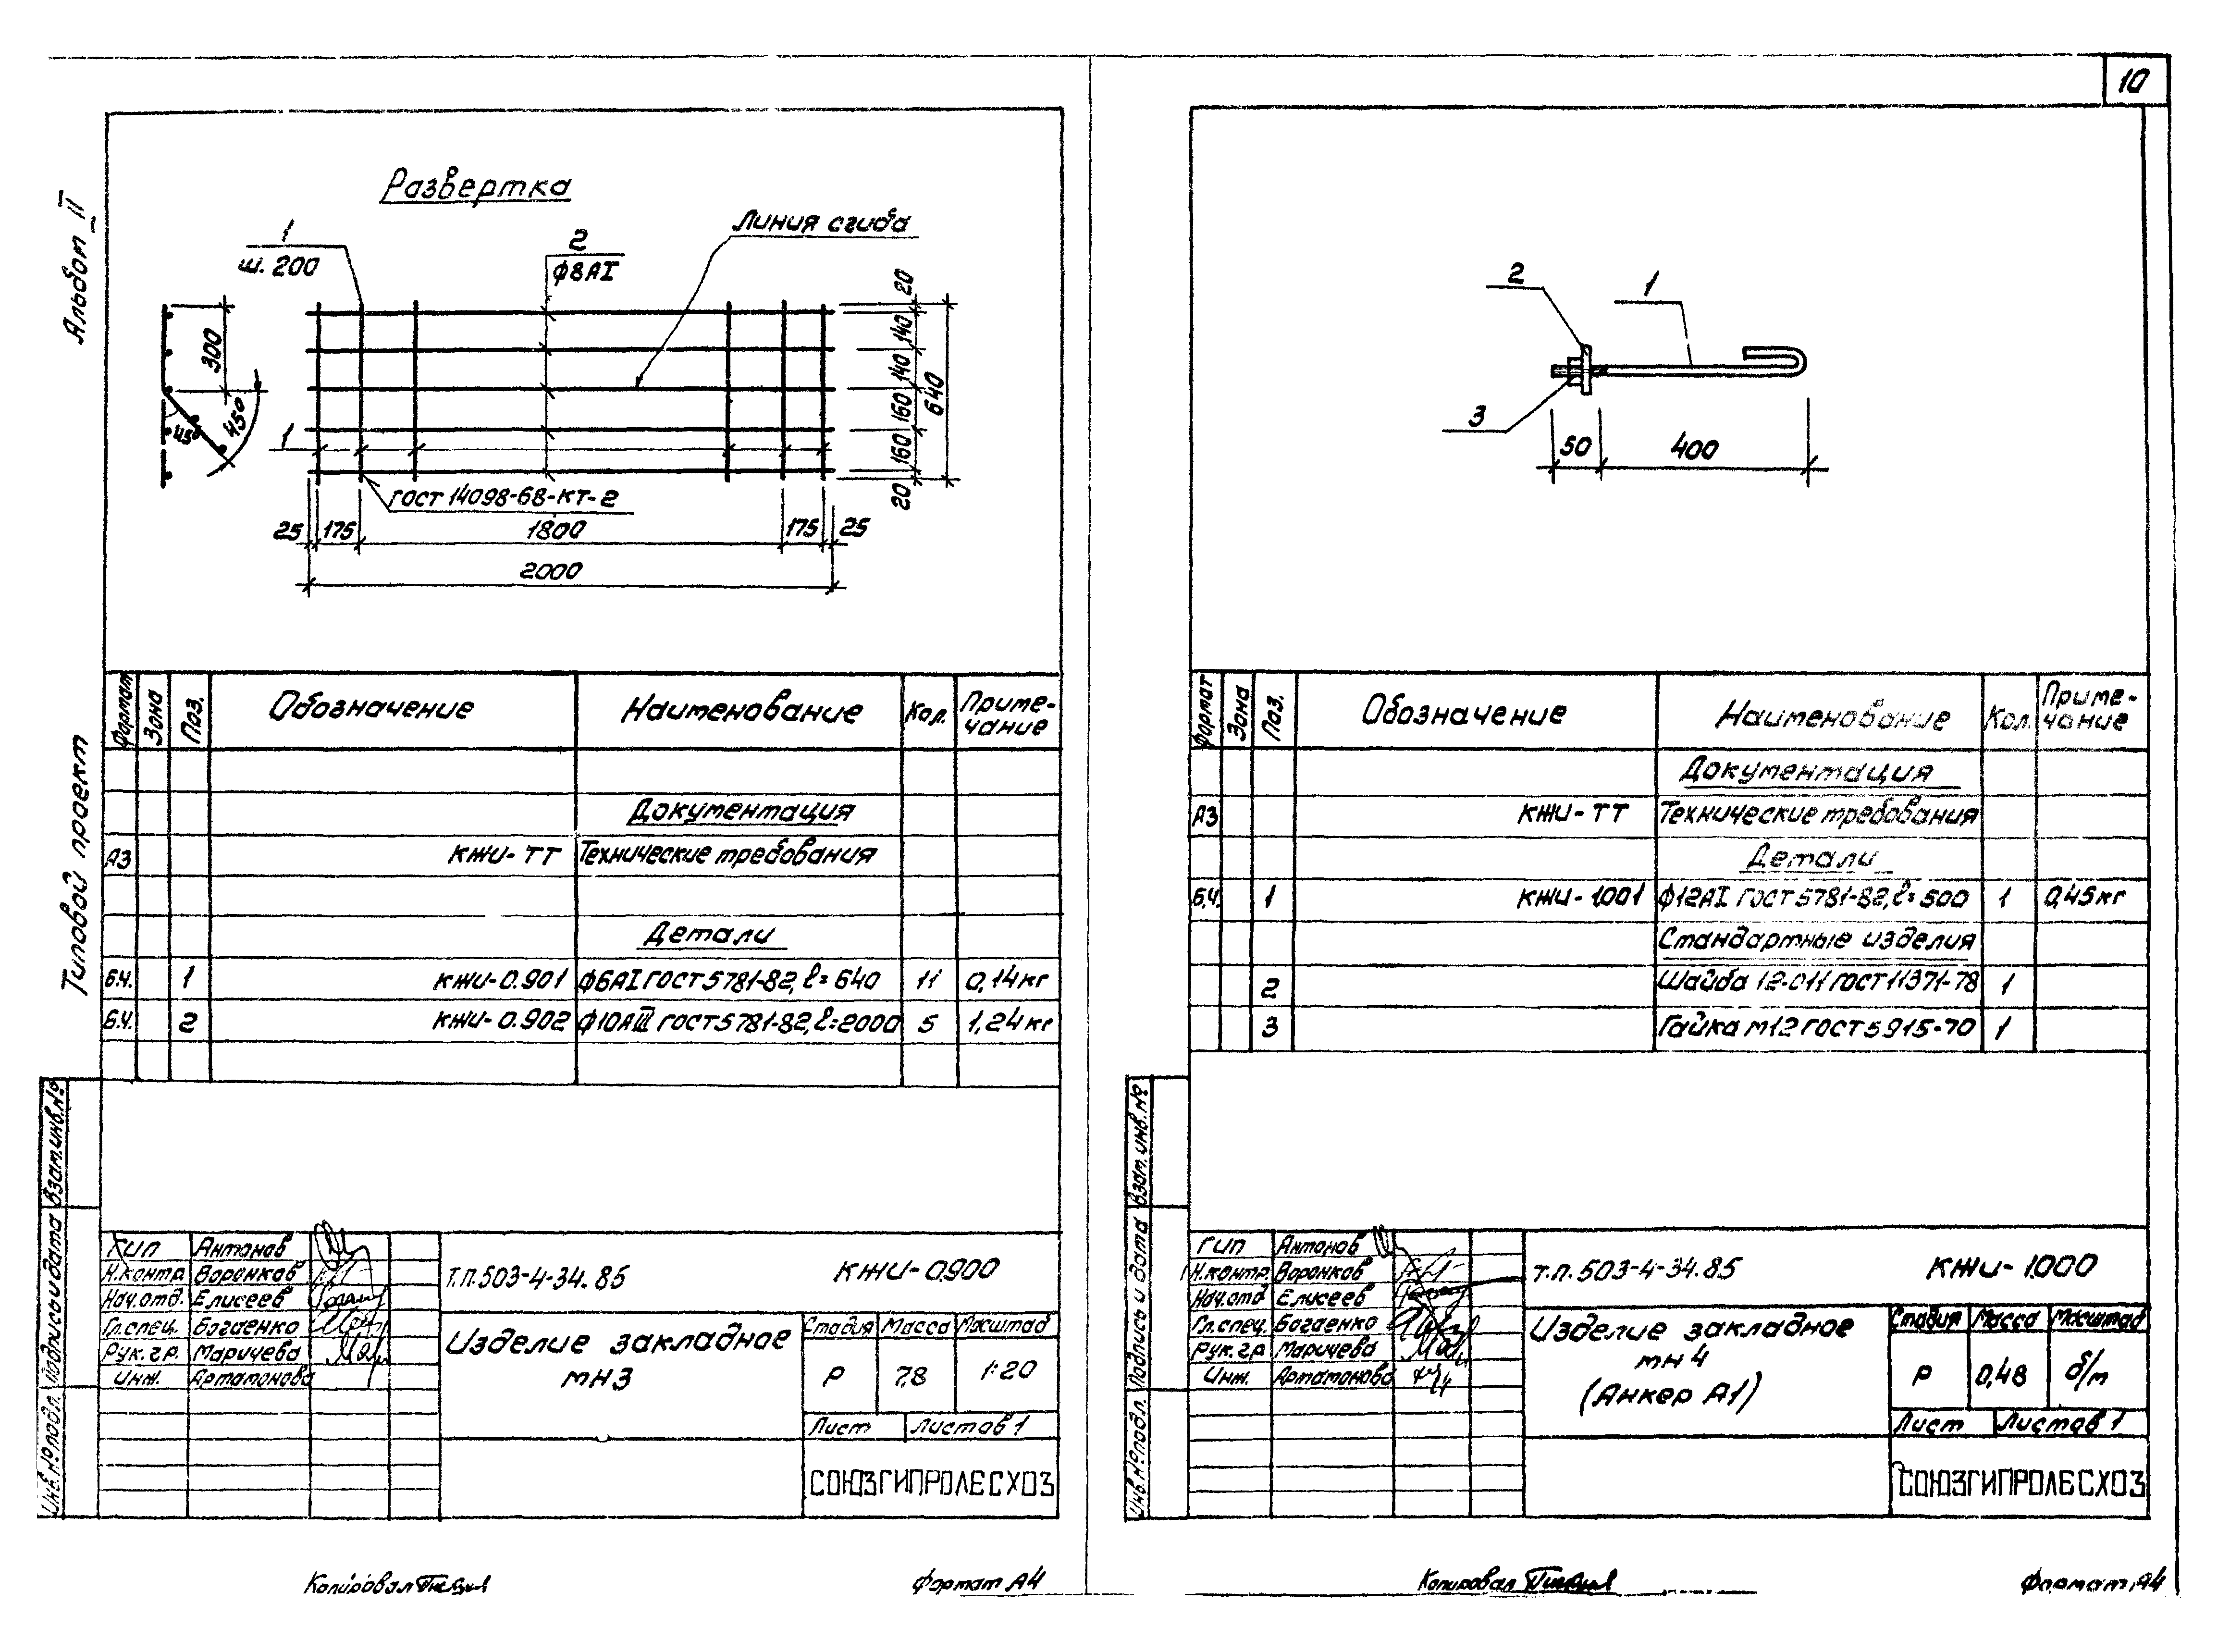 10
Альбом II
Типовой проект
Развертка
1
ш. 200
2
ф8АI
Линия сгиба
300
45°
45°
1
20
140
140
160
160
20
640
ГОСТ 14098-68-КТ-2
25 175 1800 175 25
2000
Формат Зона Поз. Обозначение Наименование Кол. Приме-
чание
Документация
А3 КЖИ-ТТ Технические требования
Детали
Б.Ч. 1 КЖИ-0.901 ф6АI ГОСТ 5781-82, ℓ=640 11 0,14кг
Б.Ч. 2 КЖИ-0.902 ф10АIII ГОСТ 5781-82, ℓ=2000 5 1,24кг
Взам.инв.№
Подпись и дата
Инв.№подл.
ГИП Антонов
Н.контр. Воронков
Нач.отд. Елисеев
Гл.спец. Богаенко
Рук.гр. Маричева
Инж. Артамонова
Т.П.503-4-34.85 КЖИ-0.900
Изделие закладное
МН3
Стадия Масса Масштаб
Р 7,8 1:20
Лист Листов 1
СОЮЗГИПРОЛЕСХОЗ
Копировал
Формат А4
2
1
3
50 400
Формат Зона Поз. Обозначение Наименование Кол. Приме-
чание
Документация
А3 КЖИ-ТТ Технические требования
Детали
Б.Ч. 1 КЖИ-1.001 ф12АI ГОСТ 5781-82, ℓ=500 1 0,45кг
Стандартные изделия
2 Шайба 12-011 ГОСТ 11371-78 1
3 Гайка М12 ГОСТ 5915-70 1
Взам.инв.№
Подпись и дата
Инв.№подл.
ГИП Антонов
Н.контр. Воронков
Нач.отд. Елисеев
Гл.спец. Богаенко
Рук.гр. Маричева
Инж. Артамонова
Т.П.503-4-34.85 КЖИ-1.000
Изделие закладное
МН4
(Анкер А1)
Стадия Масса Масштаб
Р 0,48 б/м
Лист Листов 1
СОЮЗГИПРОЛЕСХОЗ
Копировал
Формат А4